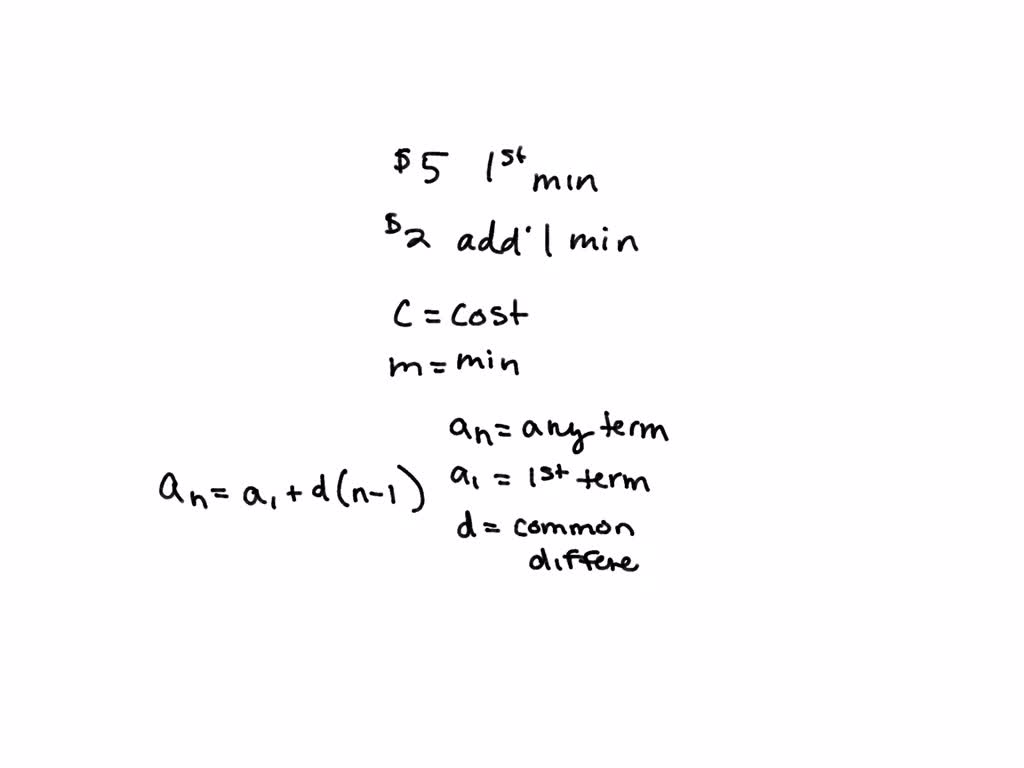 $5 1st min
$2 add'l min
C = cost
m = min
an = any term
an = a1 + d(n-1)
a1 = 1st term
d = common
differe